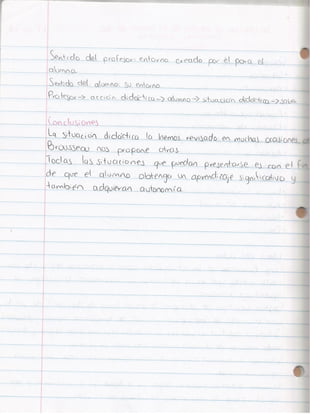 Sentido del profesor: entorno creado por el para el
alumno
Sentido del alumno: su entorno
Profesor → acción didáctica → alumno → situación didáctica → saber
Conclusiones
La situación didáctica la hemos revisado en muchas ocasiones,
Brousseau nos propone otras
Todas las situaciones que puedan presentarse es con el fin
de que el alumno obtenga un aprendizaje significativo y
también adquieran autonomía